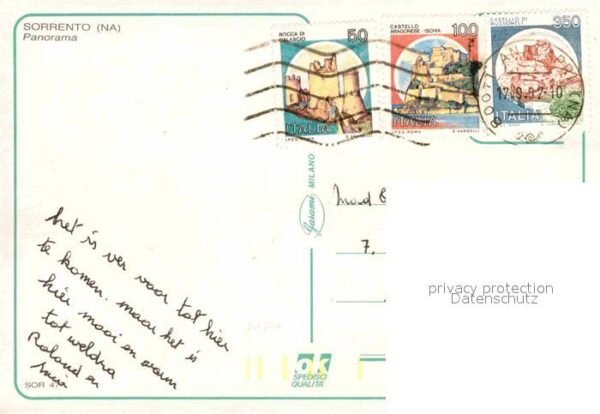 SORRENTO (NA)
Panorama
ROCCA DI CALASCIO
50
ITALIA
I.P.Z.S.-ROMA
E. VANGELLI
CASTELLO ARAGONESE-ISCHIA
100
ITALIA
I.P.Z.S.-ROMA
E. VANGELLI
CASTELLO DI MUSSOMELI
350
ITALIA
17.9.87.10
Garami MILANO
7,
privacy protection
Datenschutz
het is ver voor tot hier
te komen. maar het is
hier mooi en warm
tot weldra
Roland en
ok
SPEDISCI QUALITÀ